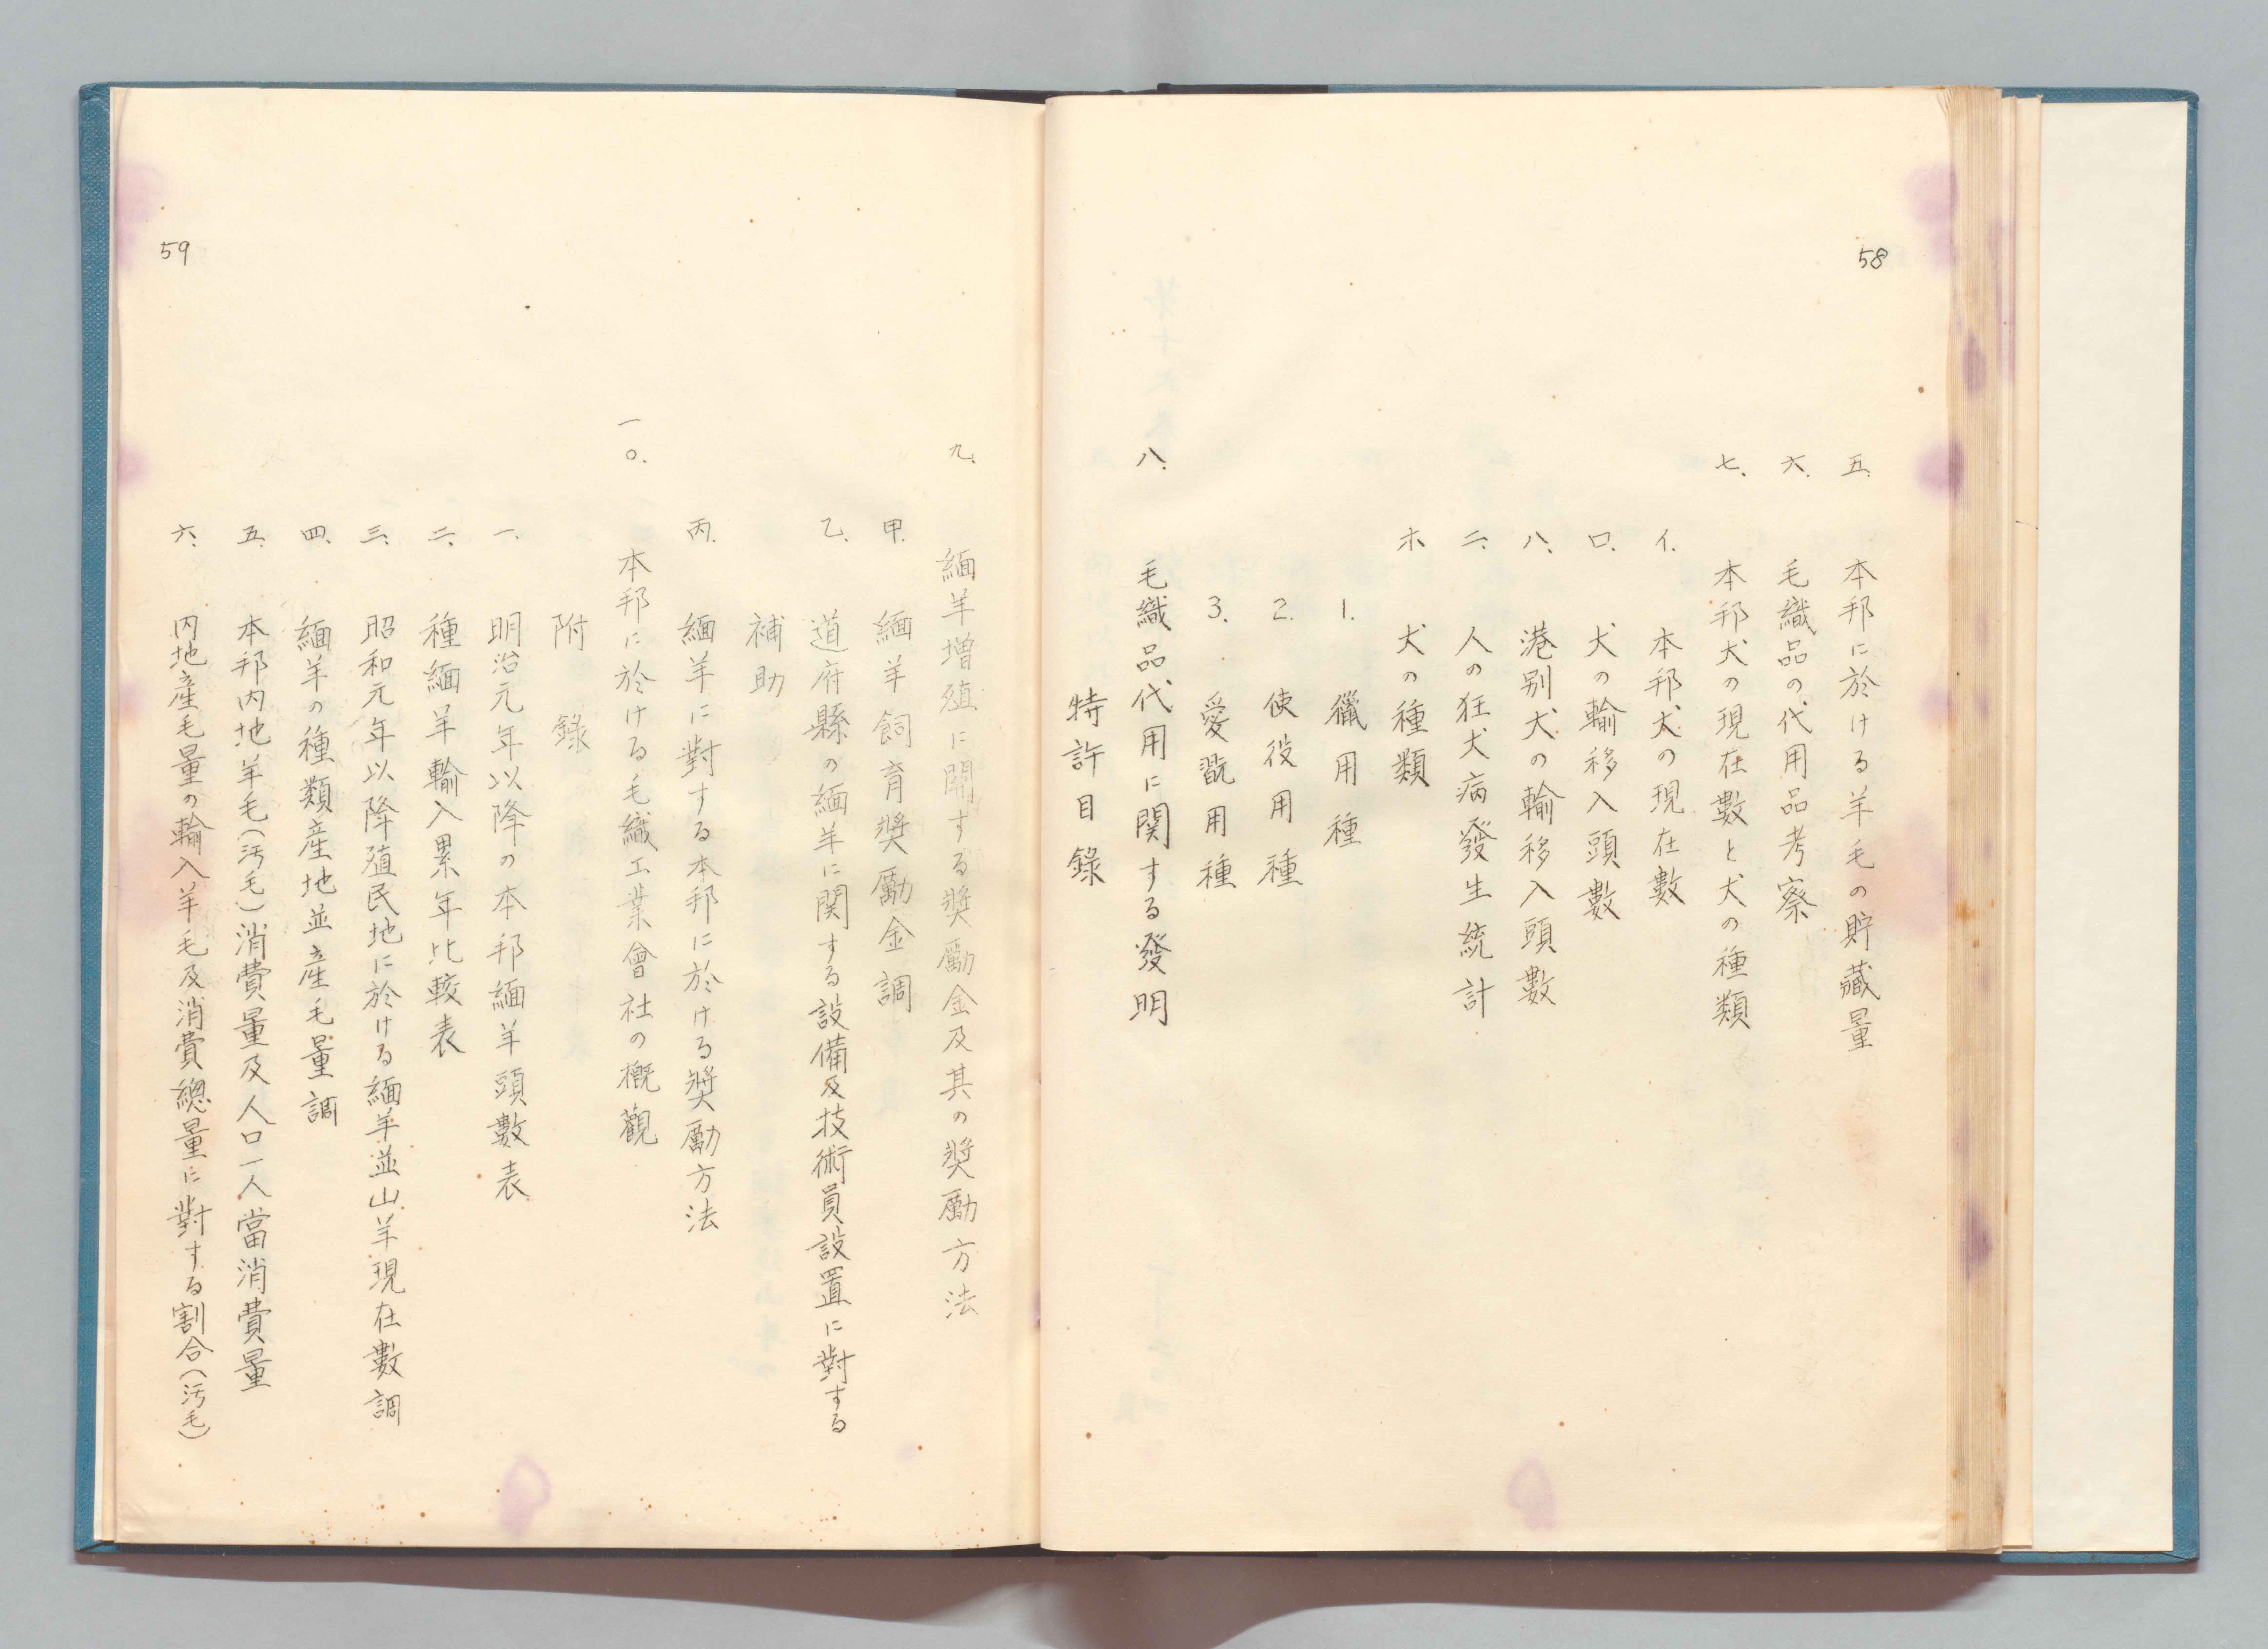 58
五.本邦に於ける羊毛の貯藏量
六.毛織品の代用品考察
七.本邦犬の現在數と犬の種類
イ.本邦犬の現在數
ロ.犬の輸移入頭數
ハ.港別犬の輸移入頭數
ニ.人の狂犬病發生統計
ホ 犬の種類
1.獵用種
2.使役用種
3.愛翫用種
八.毛織品代用に関する發明
特許目錄
九.緬羊增殖に関する奬勵金及其の奬勵方法
甲.緬羊飼育奬勵金調
乙.道府縣の緬羊に関する設備及技術員設置に對する
補助
丙.緬羊に對する本邦に於ける奬勵方法
一〇.本邦に於ける毛織工業會社の概觀
附錄
一.明治元年以降の本邦緬羊頭數表
二.種緬羊輸入累年比較表
三.昭和元年以降殖民地に於ける緬羊並山羊現在數調
四.緬羊の種類産地並産毛量調
五.本邦内地羊毛(汚毛)消費量及人口一人當消費量
六.内地産毛量の輸入羊毛及消費總量に對する割合(汚毛)
59